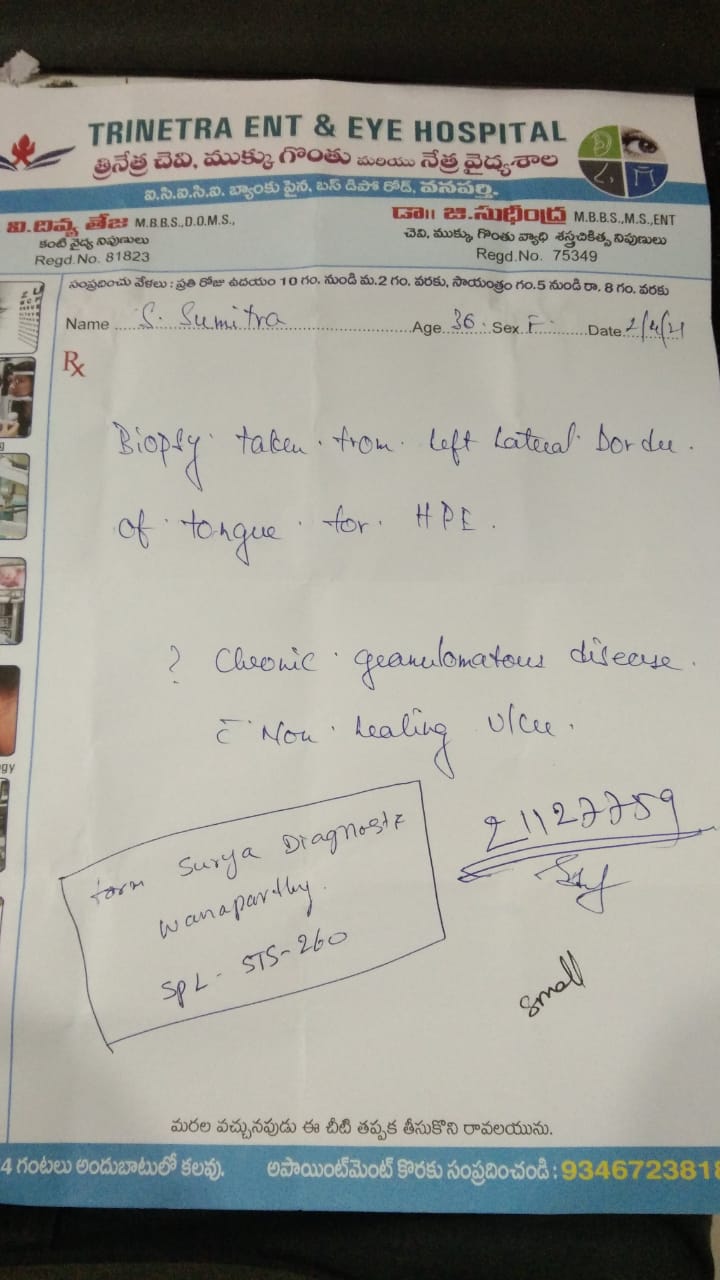 TRINETRA ENT & EYE HOSPITAL
త్రినేత్ర చెవి, ముక్కు గొంతు మరియు నేత్ర వైద్యశాల
ఐ.సి.ఐ.సి.ఐ. బ్యాంకు పైన, బస్ డిపో రోడ్, వనపర్తి.
వి.దివ్య తేజ M.B.B.S.,D.O.M.S.,
కంటి వైద్య నిపుణులు
Regd.No. 81823
డా॥ జి.సుధీంద్ర M.B.B.S.,M.S.,ENT
చెవి, ముక్కు గొంతు వ్యాధి శస్త్రచికిత్స నిపుణులు
Regd.No. 75349
సంప్రదించు వేళలు : ప్రతి రోజు ఉదయం 10 గం. నుండి మ.2 గం. వరకు, సాయంత్రం గం.5 నుండి రా. 8 గం. వరకు
Name S. Sumitra Age 36 Sex F Date 2/4/21
Rx
Biopsy taken from left lateral border
of tongue for HPE.
? Chronic granulomatous disease.
c̄ Non healing ulcer.
21127759
form Surya Diagnostic
Wanaparthy.
SPL - STS-260
small
మరల వచ్చునపుడు ఈ చీటి తప్పక తీసుకొని రావలయును.
4 గంటలు అందుబాటులో కలవు. అపాయింట్‌మెంట్ కొరకు సంప్రదించండి : 9346723818